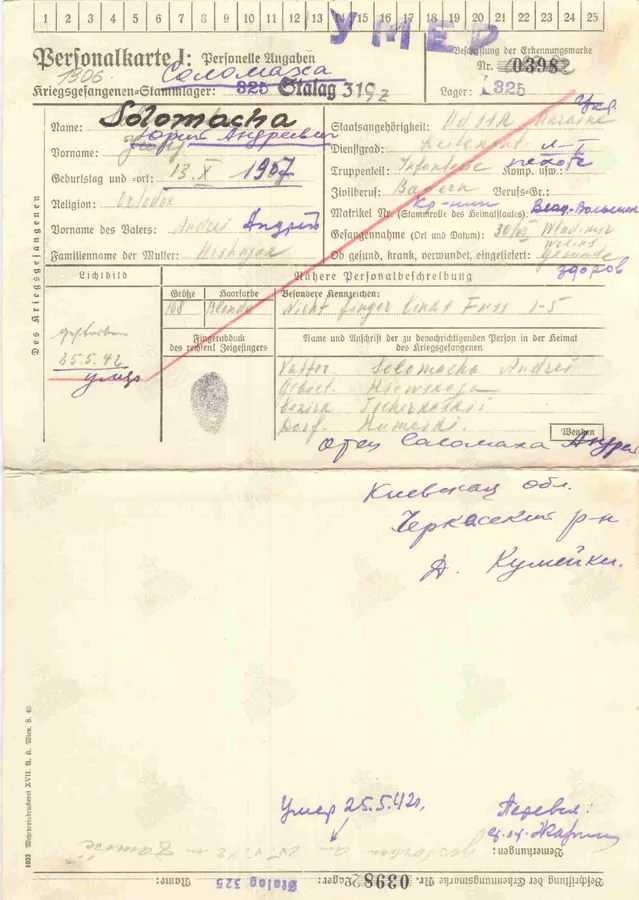 1 2 3 4 5 6 7 8 9 10 11 12 13 14 15 16 17 18 19 20 21 22 23 24 25
УМЕР
Personalkarte I: Personelle Angaben
Beschriftung der Erkennungsmarke
1306. Соломаха
Nr. 03982
Kriegsgefangenen-Stammlager: 325 Stalag 319/z
Lager: 325
Des Kriegsgefangenen
Name: Solomacha
Юрий Андреевич
Vorname:
Geburtstag und -ort: 13. X 1907
Religion: Ortodox
Vorname des Vaters: Andrei Андрей
Familienname der Mutter:
Укр
Staatsangehörigkeit:
Dienstgrad: Leitenant л-т
Truppenteil: Infanterie Komp. usw.: пехота
Zivilberuf: Bauern Berufs-Gr.:
Matrikel Nr. (Stammrolle des Heimatstaates): Кр-нин
Влад-Волынск
Gefangennahme (Ort und Datum): Wladimir
Wolins
Ob gesund, krank, verwundet, eingeliefert: Gesunde
здоров
Lichtbild
Gestorben
25.5.42
умер
Nähere Personalbeschreibung
Größe Haarfarbe Besondere Kennzeichen:
168 Blonde Nicht finger links Fuss 1-5
Fingerabdruck
des rechten! Zeigefingers
Name und Anschrift der zu benachrichtigenden Person in der Heimat
des Kriegsgefangenen
Vatter Solomacha Andrei
Gebiet. Kiewskaja
Bezirk Tscherkaskii
Dorf. Kumeiki.
Wenden
отец Саломаха Андрей
Киевская обл.
Черкасский р-н
Д. Кумейки.
Умер 25.5.42г.
Перевел:
Bemerkungen:
gestorben am 25.5.42 in
Beschriftung der Erkennungsmarke Nr. 03982 Lager: Stalag 325 Name:
1835 Wehrkreisdruckerei XVII. U. A. Wien. 8. 40